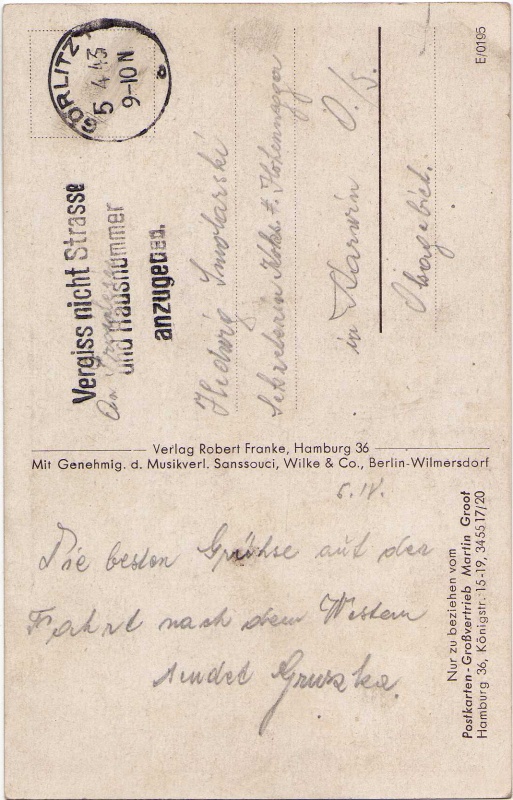 GÖRLITZ
5.4.43
9-10 N
Vergiss nicht Strasse
und Hausnummer
anzugeben.
An
Hedwig Smolarski
Sekretärin Koks.
in Karwin O./S.
Olsagebiet.
E/0195
Verlag Robert Franke, Hamburg 36
Mit Genehmig. d. Musikverl. Sanssouci, Wilke & Co., Berlin-Wilmersdorf
5.IV.
Die besten Grühse auf der
Fahrt nach dem Western
sendet Gruszka.
Nur zu beziehen vom
Postkarten-Großvertrieb Martin Groot
Hamburg 36, Königstr. 15-19, 345517/20